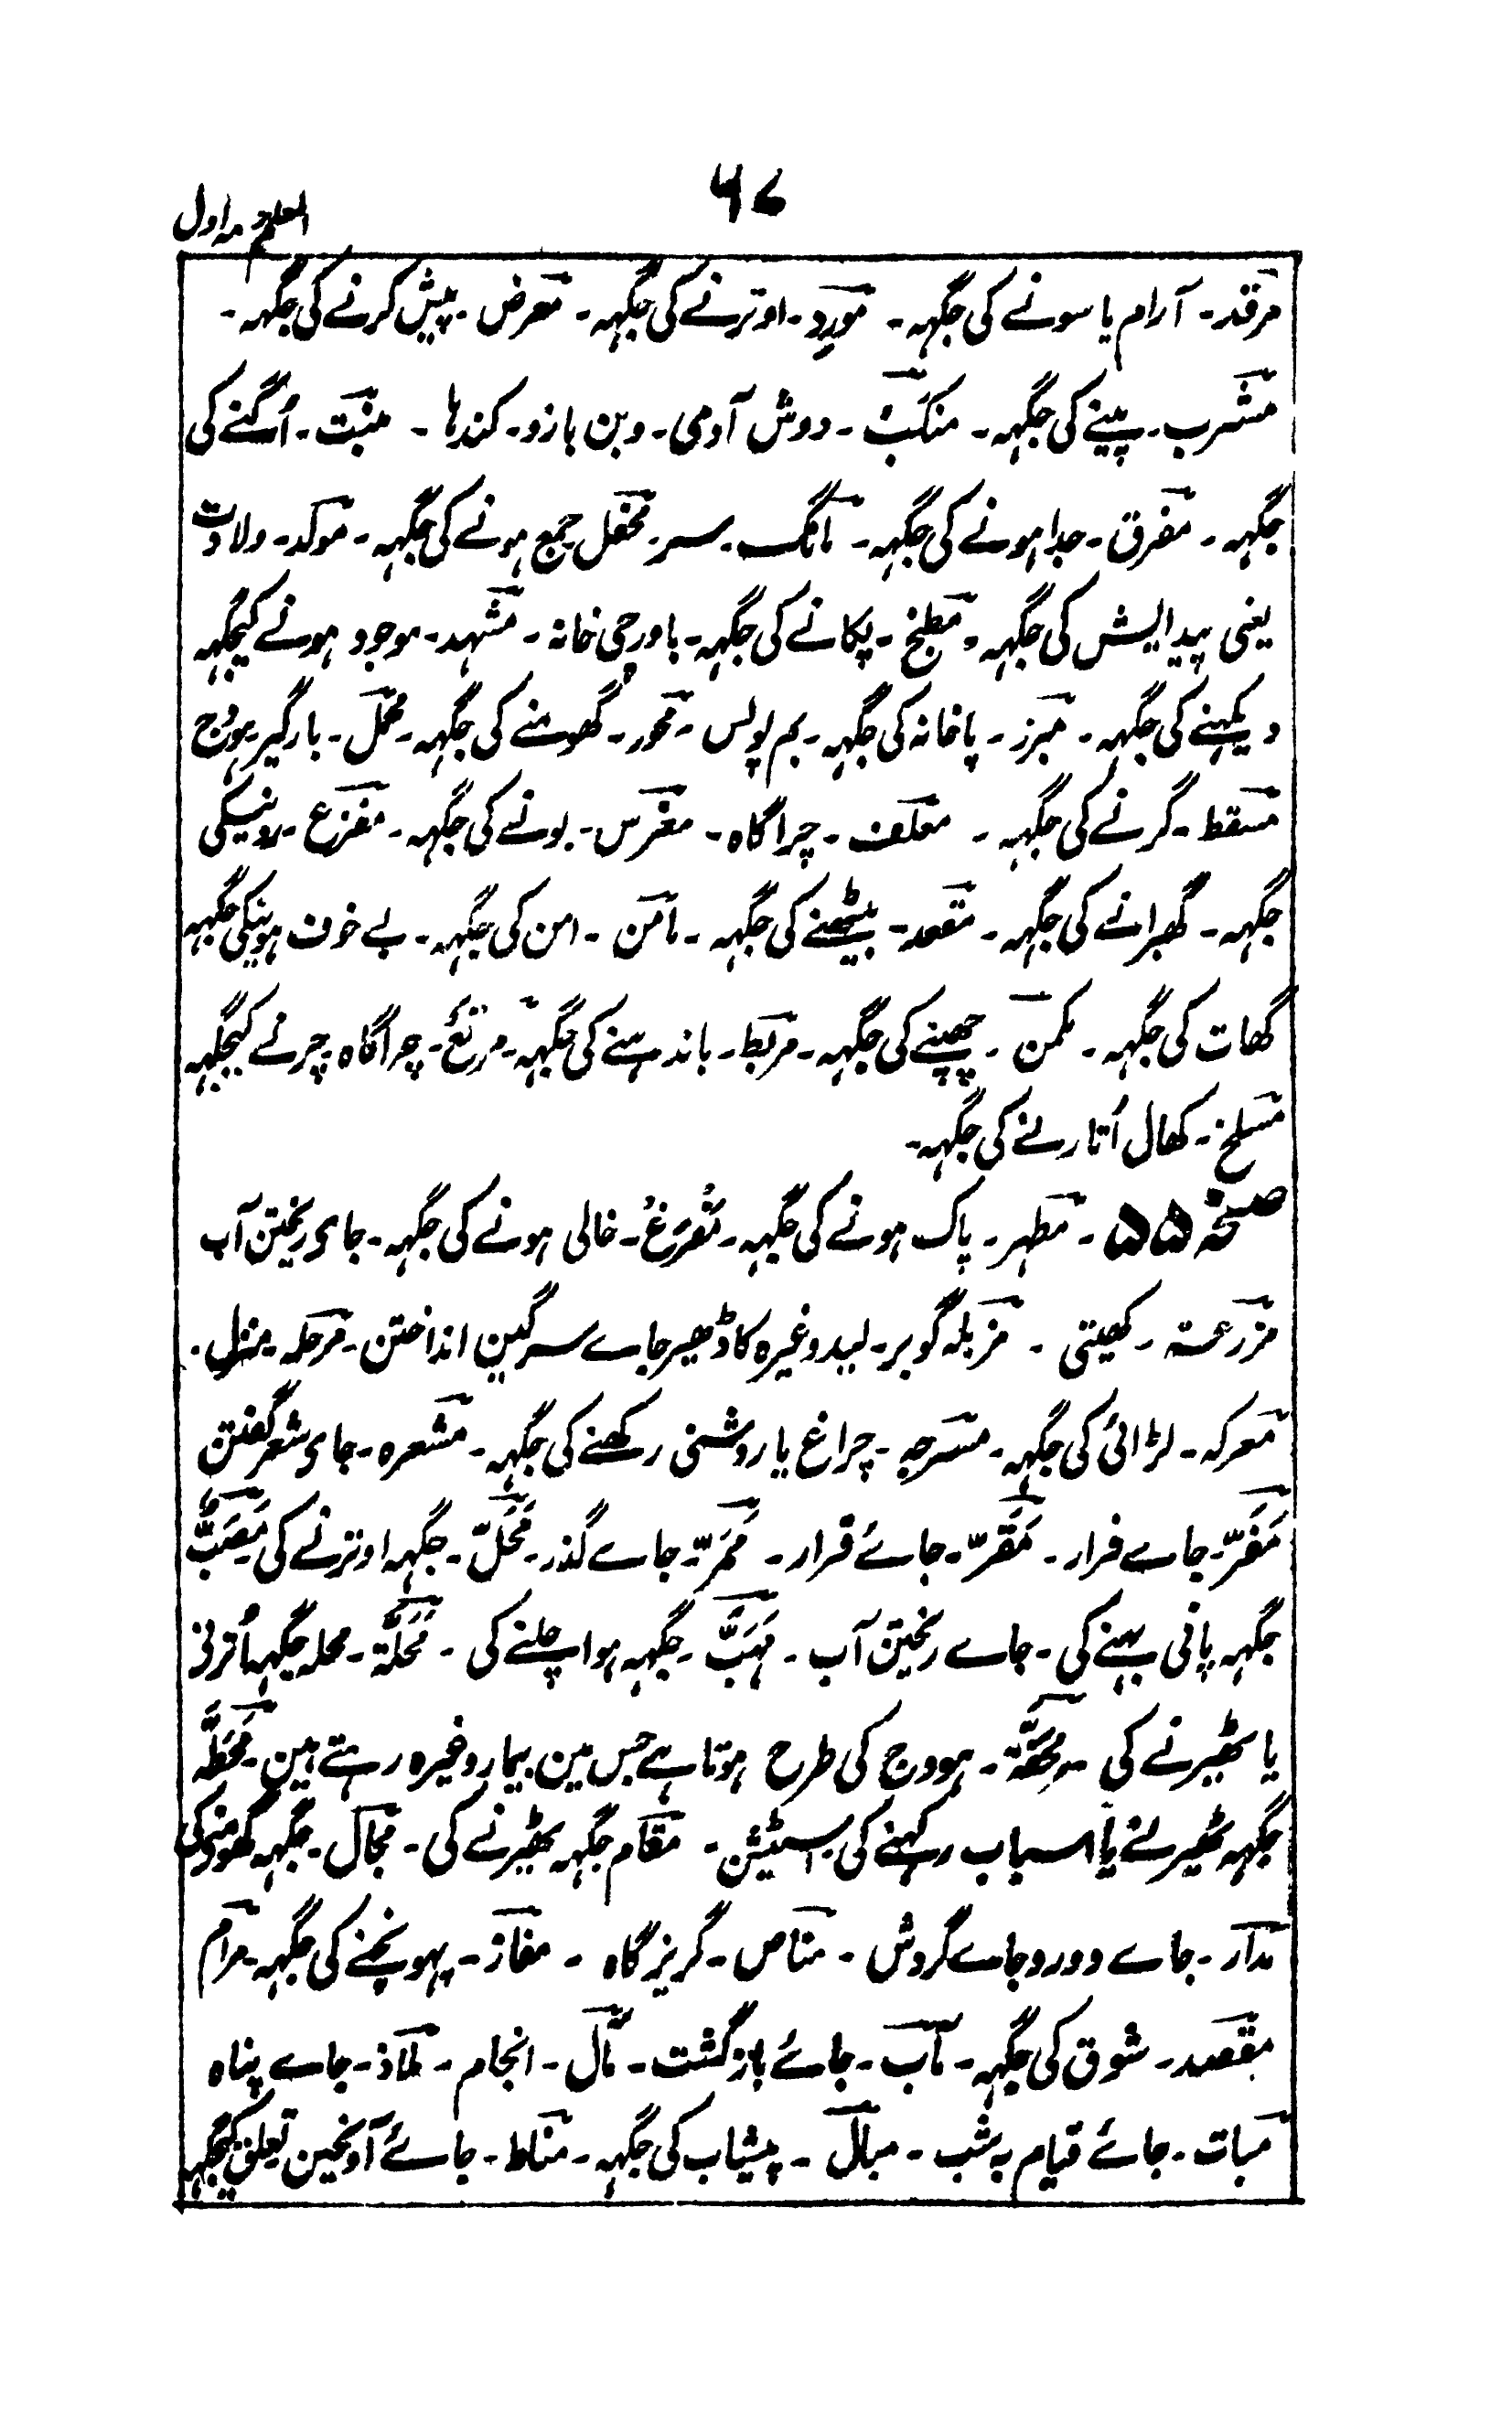 ۶۷
المعلم مہ اول
مرقد۔ آرام یا سونے کی جگہہ۔ مورد۔ اوترنے کی جگہہ۔ معرض۔ پیش کرنے کی جگہہ۔
مشرب۔ پینے کی جگہہ۔ منکب۔ دوش آدمی۔ وبن بازو۔ کندہا۔ منبت۔ اُگنے کی
جگہہ۔ مفرق۔ جدا ہونے کی جگہہ۔ مانگ۔ سر۔ محفل جمع ہونے کی جگہہ۔ مولد۔ ولادت
یعنی پیدایش کی جگہہ۔ مطبخ۔ پکانے کی جگہہ۔ باورچی خانہ۔ مشہد۔ موجود ہونے کیجگہہ
دیکہنے کی جگہہ۔ مبرز۔ پاخانہ کی جگہہ۔ بم پولس۔ محور۔ گھومنے کی جگہہ۔ محمل۔ بارگیر ہودج
مسقط۔ گرنے کی جگہہ۔ معلف۔ چراگاہ۔ مغرس۔ بونے کی جگہہ۔ مفزع۔ رونیکی
جگہہ۔ گھبرانے کی جگہہ۔ مقعد۔ بیٹھنے کی جگہہ۔ مامن۔ امن کی جگہہ۔ بے خوف ہونیکی جگہہ
گھات کی جگہہ۔ مکمن۔ چھپنے کی جگہہ۔ مربط۔ باندہنے کی جگہہ۔ مرتع۔ چراگاہ چرنے کیجگہہ
مسلخ۔ کھال اُتارنے کی جگہہ۔
صفحہ ۵۵۔ مطہر۔ پاک ہونے کی جگہہ۔ مُفرَغ۔ خالی ہونے کی جگہہ۔ جای ریختن آب
مزرعتہ۔ کھیتی۔ مزبلہ گوبر۔ لید وغیرہ کا ڈھیر جاے سرگین انداختن۔ مرحلہ۔ منزل۔
معرکہ۔ لڑائی کی جگہہ۔ مسرجہ۔ چراغ یا روشنی رکھنے کی جگہہ۔ مشعرہ۔ جای شعر گفتن
مَفَرّ۔ جاے فرار۔ مَقَرّ۔ جائے قرار۔ مَمَرّ۔ جاے گذر۔ مَحَلّ۔ جگہہ اوترنے کی۔ مَصَبّ
جگہہ پانی بہنے کی۔ جاے ریختن آب۔ مَہَبّ۔ جگہہ ہوا چلنے کی۔ مَحَلّة۔ محلہ جگہہ اُترنی
یا ٹھیرنے کی۔ مِحَفّة۔ ہودج کی طرح ہوتا ہے جس مین بیمار وغیرہ رہتے ہین۔ مَحَطّہ
جگہہ ٹھیرنے یا اسباب رکہنے کی۔ اسٹیشن۔ مقام جگہہ ٹھیرنے کی۔ مجال۔ جگہہ گھومنی کی
مدار۔ جاے دور و جاے گردش۔ مناص۔ گریز گاہ۔ مفاز۔ پہونچنے کی جگہہ۔ مرام
مقصد۔ شوق کی جگہہ۔ مآب۔ جائے بازگشت۔ مآل۔ انجام۔ ملاذ۔ جاے پناہ
مبات۔ جائے قیام بہ شب۔ مبال۔ پیشاب کی جگہہ۔ مناط۔ جائے آویختن تعلق کیجگہہ